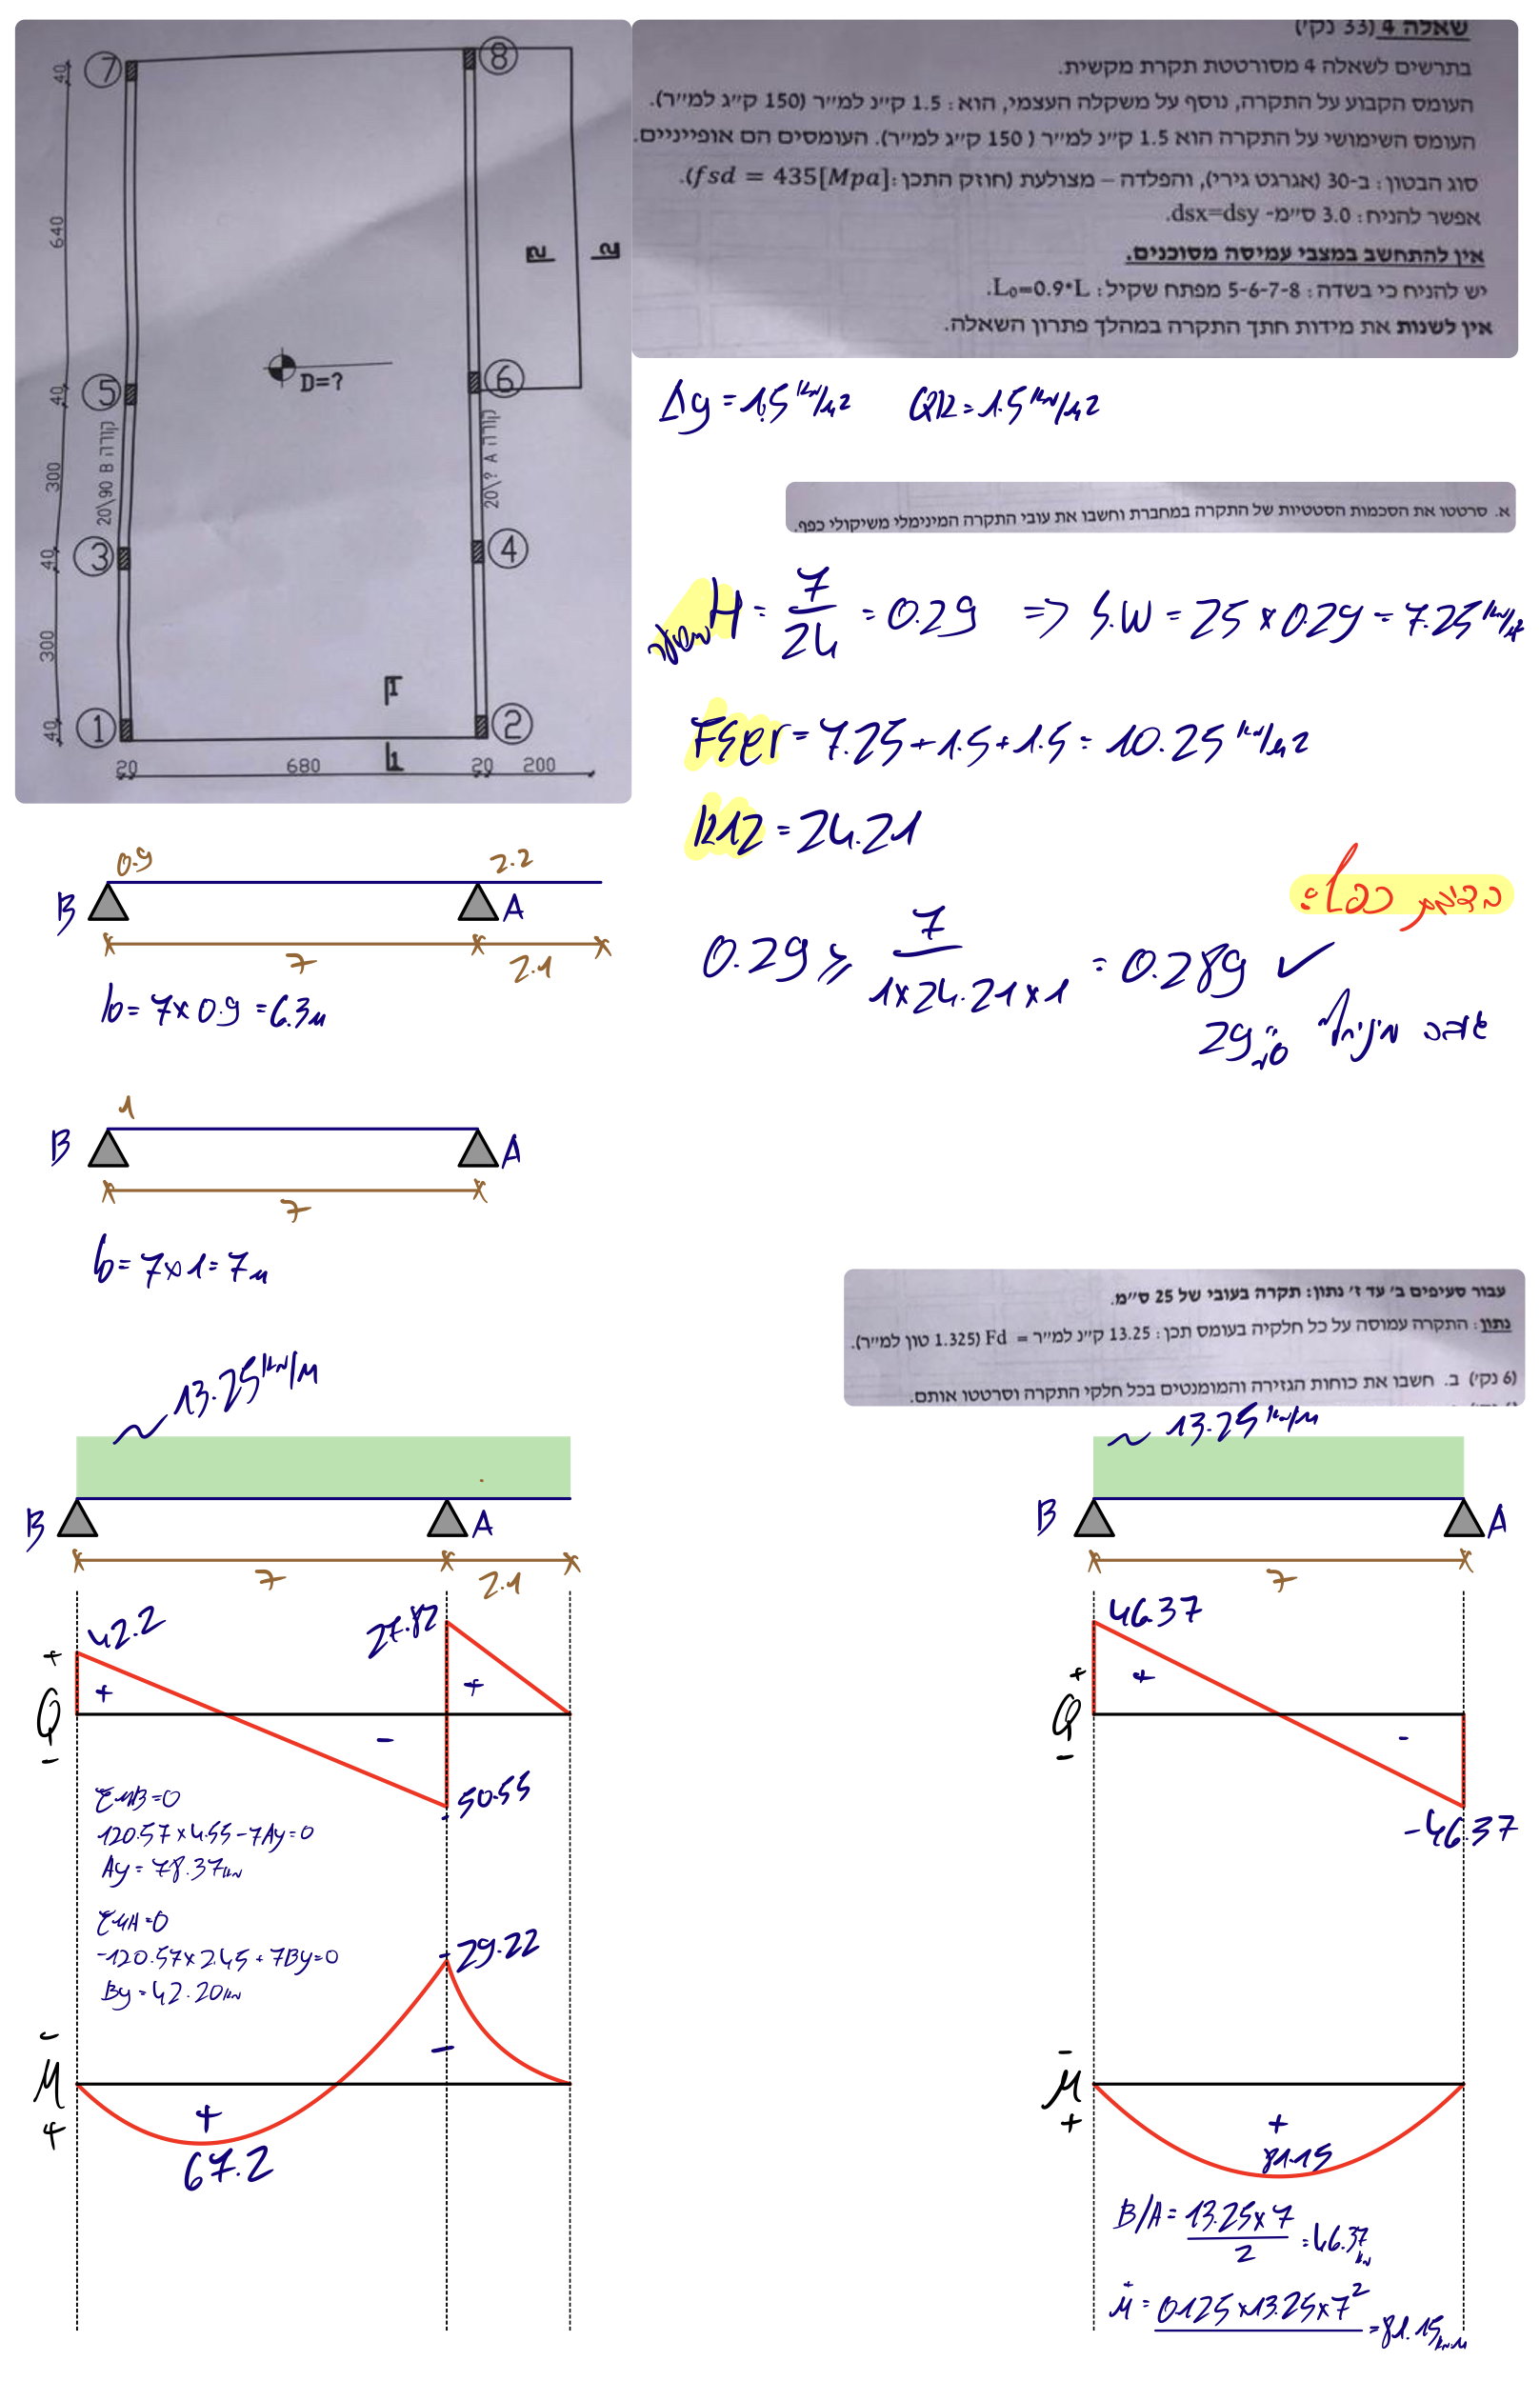 שאלה 4 (33 נק')
בתרשים לשאלה 4 מסורטטת תקרת מקשית.
העומס הקבוע על התקרה, נוסף על משקלה העצמי, הוא: 1.5 ק"נ למ"ר (150 ק"ג למ"ר).
העומס השימושי על התקרה הוא 1.5 ק"נ למ"ר ( 150 ק"ג למ"ר). העומסים הם אופייניים.
סוג הבטון: ב-30 (אגרגט גירי), והפלדה – מצולעת (חוזק התכן: fsd = 435[Mpa]).
אפשר להניח: 3.0 ס"מ- dsx=dsy.
אין להתחשב במצבי עמיסה מסוכנים.
יש להניח כי בשדה: 5-6-7-8 מפתח שקיל: L₀=0.9*L.
אין לשנות את מידות חתך התקרה במהלך פתרון השאלה.
7
8
40
640
2
2
5
6
40
D=?
קורה B 20\90
קורה A 20\?
300
3
4
40
300
1
1
1
2
40
20
680
20
200
Δg = 1.5 kN/m2 QK = 1.5 kN/m2
א. סרטטו את הסכמות הסטטיות של התקרה במחברת וחשבו את עובי התקרה המינימלי משיקולי כפף.
H = 7/24 = 0.29 => S.W = 25 x 0.29 = 7.25 kN/m2
Fser = 7.25 + 1.5 + 1.5 = 10.25 kN/m2
K12 = 24.21
בדיקת כפף:
0.29 ⩾ 7/(1x24.21x1) = 0.289 ✓
עובי מינימלי 29 ס"מ
0.9
2.2
B
A
7
2.1
l0 = 7 x 0.9 = 6.3m
1
B
A
7
l0 = 7x1 = 7m
עבור סעיפים ב' עד ז' נתון: תקרה בעובי של 25 ס"מ.
נתון: התקרה עמוסה על כל חלקיה בעומס תכן: 13.25 ק"נ למ"ר = Fd (1.325 טון למ"ר).
(6 נק') ב. חשבו את כוחות הגזירה והמומנטים בכל חלקי התקרה וסרטטו אותם.
13.25 kN/m
B
A
7
2.1
42.2
27.82
+
Q
-
+
+
-
-50.55
ΣMB=0
120.57 x 4.55 - 7Ay = 0
Ay = 78.37kN
ΣMA=0
-120.57 x 2.45 + 7By = 0
By = 42.20kN
-29.22
-
M
+
-
+
67.2
13.25 kN/m
B
A
7
46.37
+
Q
-
+
-
-46.37
-
M
+
+
81.15
B/A = 13.25x7/2 = 46.37kN
M+ = 0.125 x 13.25 x 7² = 81.15kN.m